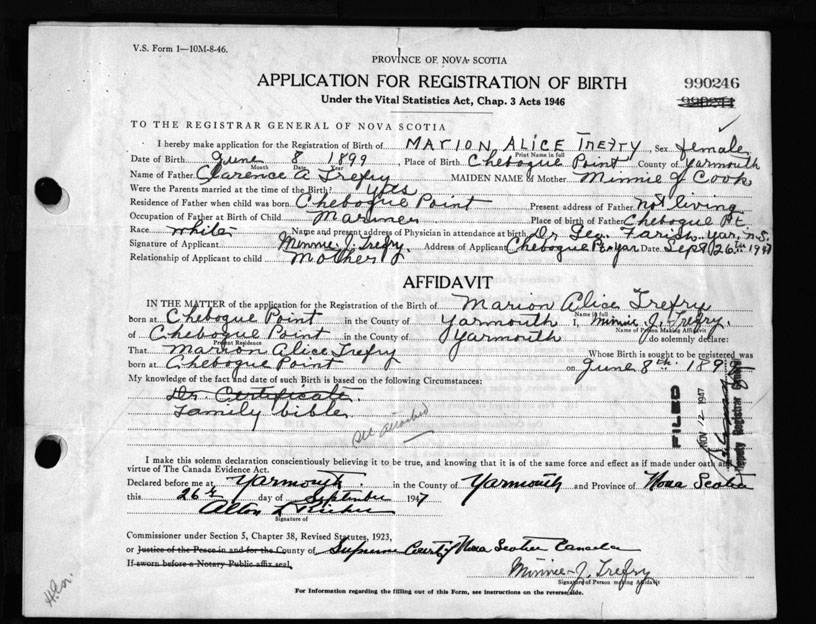 V.S. Form 1—10M-8-46.
PROVINCE OF NOVA SCOTIA
APPLICATION FOR REGISTRATION OF BIRTH
990246
Under the Vital Statistics Act, Chap. 3 Acts 1946
TO THE REGISTRAR GENERAL OF NOVA SCOTIA
I hereby make application for the Registration of Birth of MARION ALICE Trefry, Sex female
Print Name in full
Date of Birth June 8 1899, Place of Birth Chebogue Point County of Yarmouth
Month Date Year
Name of Father Clarence A Trefry MAIDEN NAME of Mother Minnie J Cook
Were the Parents married at the time of the Birth? yes
Residence of Father when child was born Chebogue Point Present address of Father Not living
Occupation of Father at Birth of Child Mariner Place of birth of Father Chebogue Pt
Race white Name and present address of Physician in attendance at birth Dr Geo. Farish Yar, N.S.
Signature of Applicant Minnie J. Trefry. Address of Applicant Chebogue Pt Yar Date Sept 26th 1947
Relationship of Applicant to child Mother
AFFIDAVIT
IN THE MATTER of the application for the Registration of the Birth of Marion Alice Trefry
Name in full
born at Chebogue Point in the County of Yarmouth I, Minnie J. Trefry.
Name of Person Making Affidavit
of Chebogue Point in the County of Yarmouth do solemnly declare:
Present Residence
That Marion Alice Trefry Whose Birth is sought to be registered was
born at Chebogue Point on June 8th 1899
My knowledge of the fact and date of such Birth is based on the following Circumstances:
Dr. Certificate
Family bible
See attached
FILED
NOV 12 1947
Deputy Registrar General
I make this solemn declaration conscientiously believing it to be true, and knowing that it is of the same force and effect as if made under oath and
virtue of The Canada Evidence Act.
Declared before me at Yarmouth in the County of Yarmouth and Province of Nova Scotia
this 26th day of September 1947
Signature of
Commissioner under Section 5, Chapter 38, Revised Statutes, 1923,
or Justice of the Peace in and for the County of Supreme Court of Nova Scotia Canada
If sworn before a Notary Public affix seal.
Minnie J. Trefry
Signature of Person making Affidavit
For Information regarding the filling out of this Form, see instructions on the reverse side.